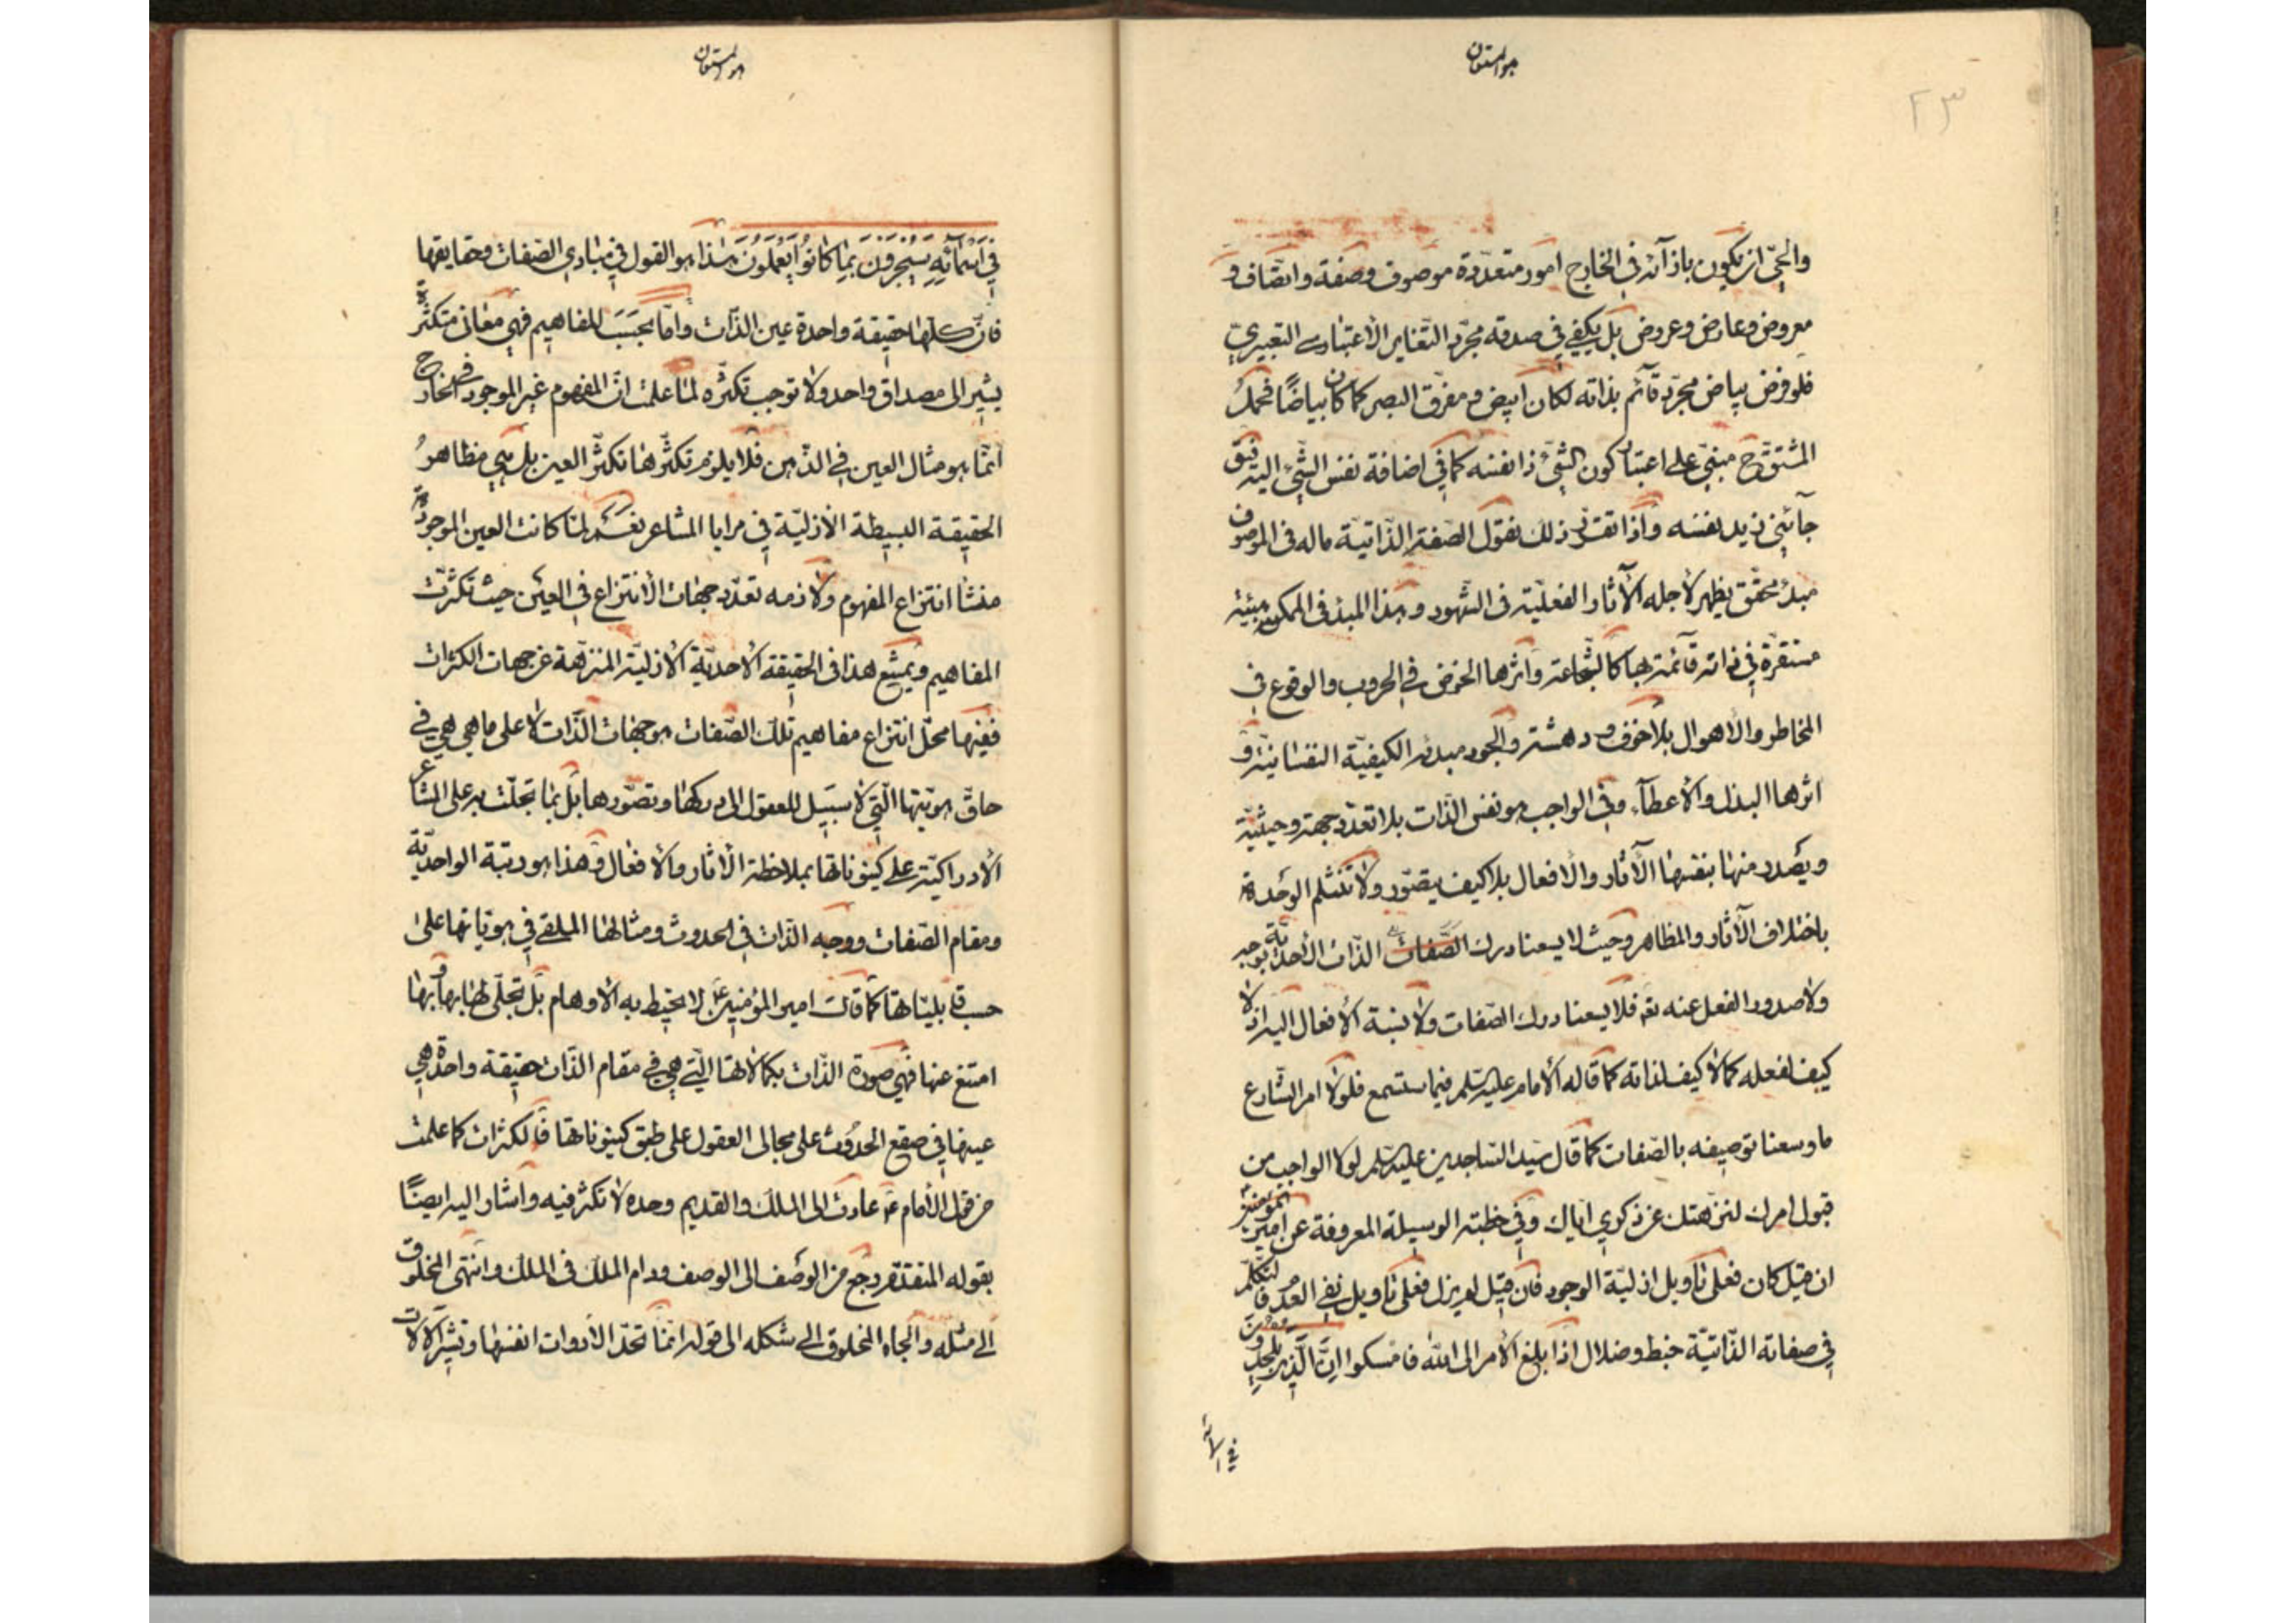 هو المستعان
٢٣
والحيّ ان يكون بازآئه فى الخارج امور متعدّدة موصوف وصفة واتّصاف و
معروض وعارض وعروض بل يكفي في صدقه مجرّد التّغاير الأعتباري التعبيريّ
فلو فرض بياض مجرّد قآئم بذاته لكان ابيض ومفرّق البصر كما كان بياضًا فحمل
المشتقّ ح مبنيّ على اعتبار كون الشّئ ذا نفسه كما في اضافة نفس الشّئ اليه فيق
جآئني زيد نفسه واذا تقرّر ذلك نقول الصّفة الذّاتيّة ماله فى الموصوف
مبدء محقّق يظهر لأجله الآثار الفعليّة فى الشّهود وهذا المبدء فى الممكن هيئة
مستقرّة في ذاته قآئمة بها كالشّجاعة واثرها الخوض في الحروب والوقوع في
المخاطر والأهوال بلا خوف ودهشة والجود مبدئه الكيفيّة النفسانيّة و
اثرها البذل والأعطآء وفي الواجب هو نفس الذّات بلا تعدّد جهة وحيثيّة
ويصدر منها بنفسها الآثار والأفعال بلا كيف يتصوّر ولا تنثلم الوحدة
باختلاف الآثار والمظاهر وحيث لا يسعنا درك الصّفات الذّات الأحديّة بوجه
ولا صدور الفعل عنه تع فلا يسعنا درك الصّفات ولا نسبة الأفعال اليه اذ لا
كيف لفعله كما لا كيف لذاته كما قاله الأمام عليه السّلم فيما ستسمع فلولا امر الشّارع
ما وسعنا توصيفه بالصّفات كما قال سيّد السّاجدين عليه السّلم لولا الواجب من
قبول امرك لنزّهتك عن ذكري ايّاك وفي خطبة الوسيلة المعروفة عن امير المؤمنين
ان قيل كان فعلى تأويل ازليّة الوجود فان قيل لم يزل فعلى تأويل نفي العدم فالتكلّم
في صفاته الذّاتيّة خبط وضلال اذا بلغ الأمر الى اللّه فامسكوا انّ الّذين يلحدون
في اسمآئه
هو المستعان
فِي اَسْمَآئِهِ سَيُجْزَوْنَ بِمَا كَانُوا يَعْمَلُونَ هذا هو القول في مبادي الصّفات وحقايقها
فانّ كلّها حقيقة واحدة عين الذّات وامّا بحسب المفاهيم فهي معانى متكثّرة
يشير الى مصداق واحد ولا توجب تكثّره لما علمت انّ المفهوم غير الموجود في الخارج
انّما هو مثال العين في الذّهن فلا يلزم تكثّرها تكثّر العين بل هي مظاهر
الحقيقة البسيطة الأزليّة في مرايا المشاعر نعم لمّا كانت العين الموجودة
منشأ انتزاع المفهوم ولازمه تعدّد جهات الأنتزاع فى العين حيث تكثّرت
المفاهيم ويمتنع هذا فى الحقيقة الأحديّة الأزليّة المنزّهة عن جهات الكثرات
ففيها محلّ انتزاع مفاهيم تلك الصّفات هو جهات الذّات لا على ما هي هي في
حاقّ هويّتها الّتي لا سبيل للعقول الى دركها وتصوّرها بل بما تجلّت به على المشاعر
الأدراكيّة على كينوناتها بملاحظة الأثار والأفعال وهذا هو رتبة الواحديّة
ومقام الصّفات ووجه الذّات في الحدوث ومثالها الملقى في هويّاتها على
حسب قابليّاتها كما قال امير المؤمنين ع لا تحيط به الأوهام بل تجلّى لها بها وبها
امتنع عنها فهي صورة الذّات بكمالاتها الّتي هي في مقام الذّات حقيقة واحدة هي
عينها في صقع الحدوث على مجالى العقول على طبق كينوناتها فالكثرات كما علمت
من قول الأمام ع عادت الى الملك والقديم وحده لا تكثر فيه واشار اليه ايضًا
بقوله المتقدّم رجع من الوصف الى الوصف ودام الملك فى الملك وانتهى المخلوق
الى مثله والجاه المخلوق الى شكله الى قوله انّما تحدّ الأدوات انفسها وتشير الآلات